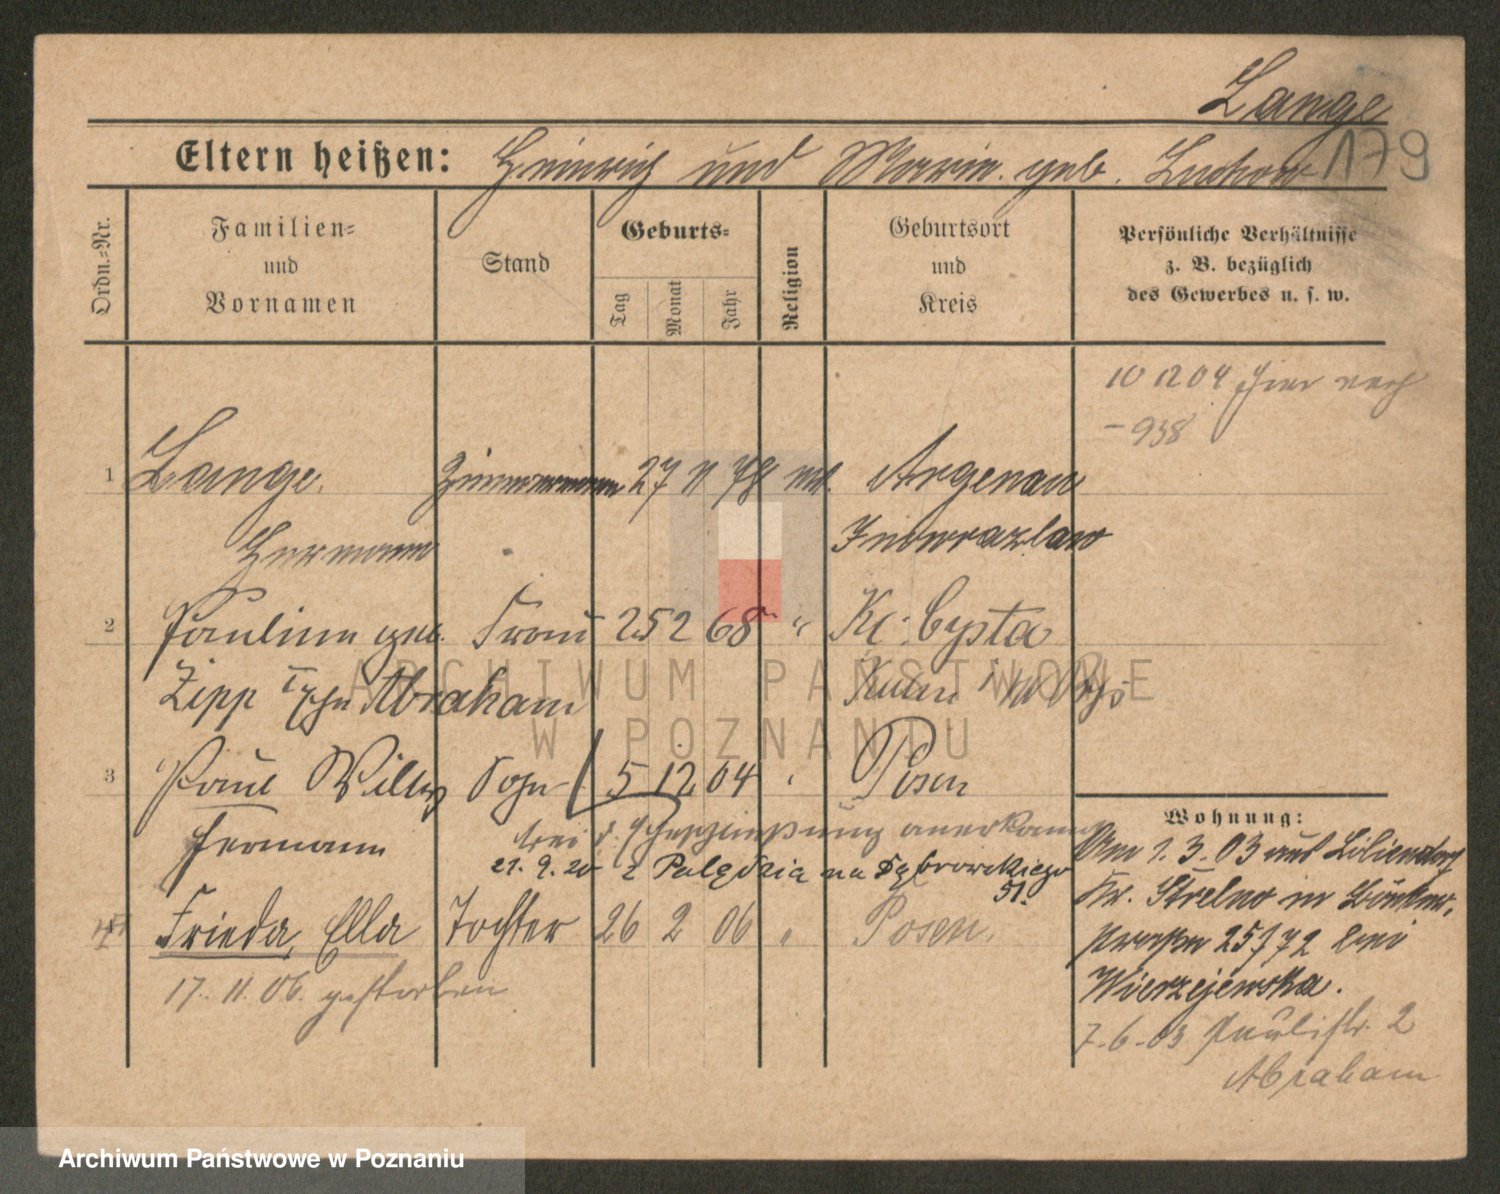 Lange
179
Eltern heißen: Heinrich und Marie geb. Luckow
Ordn.=Nr.
Familien=
und
Vornamen
Stand
Geburts=
Tag
Monat
Jahr
Religion
Geburtsort
und
Kreis
Persönliche Verhältnisse
z. B. bezüglich
des Gewerbes u. s. w.
10 12 04 hier nach
- 938
1 Lange Zimmermann 27 11 78 ev. Argenau
Hermann Inowrazlaw
2 Pauline geb. Frau 25 2 68 " Kl. Cysta
Zipp Abraham Kulm
3 Paul Willy Sohn 5 12 04 " Posen
Hermann bei d. Eheschließung anerkannt
21. 9. 20 z Palędzia na Dąbrowskiego
51.
Frieda, Ella Tochter 26 2 06 " Posen.
17. 11. 06. gestorben
Wohnung:
Am 1. 3. 03 aus Liliendorf
Kr. Strelno in Bäcker-
straße 25 I 72 bei
Wierzejewska.
7. 6. 03 Paulistr. 2
Abraham
ARCHIWUM PAŃSTWOWE
W POZNANIU
Archiwum Państwowe w Poznaniu